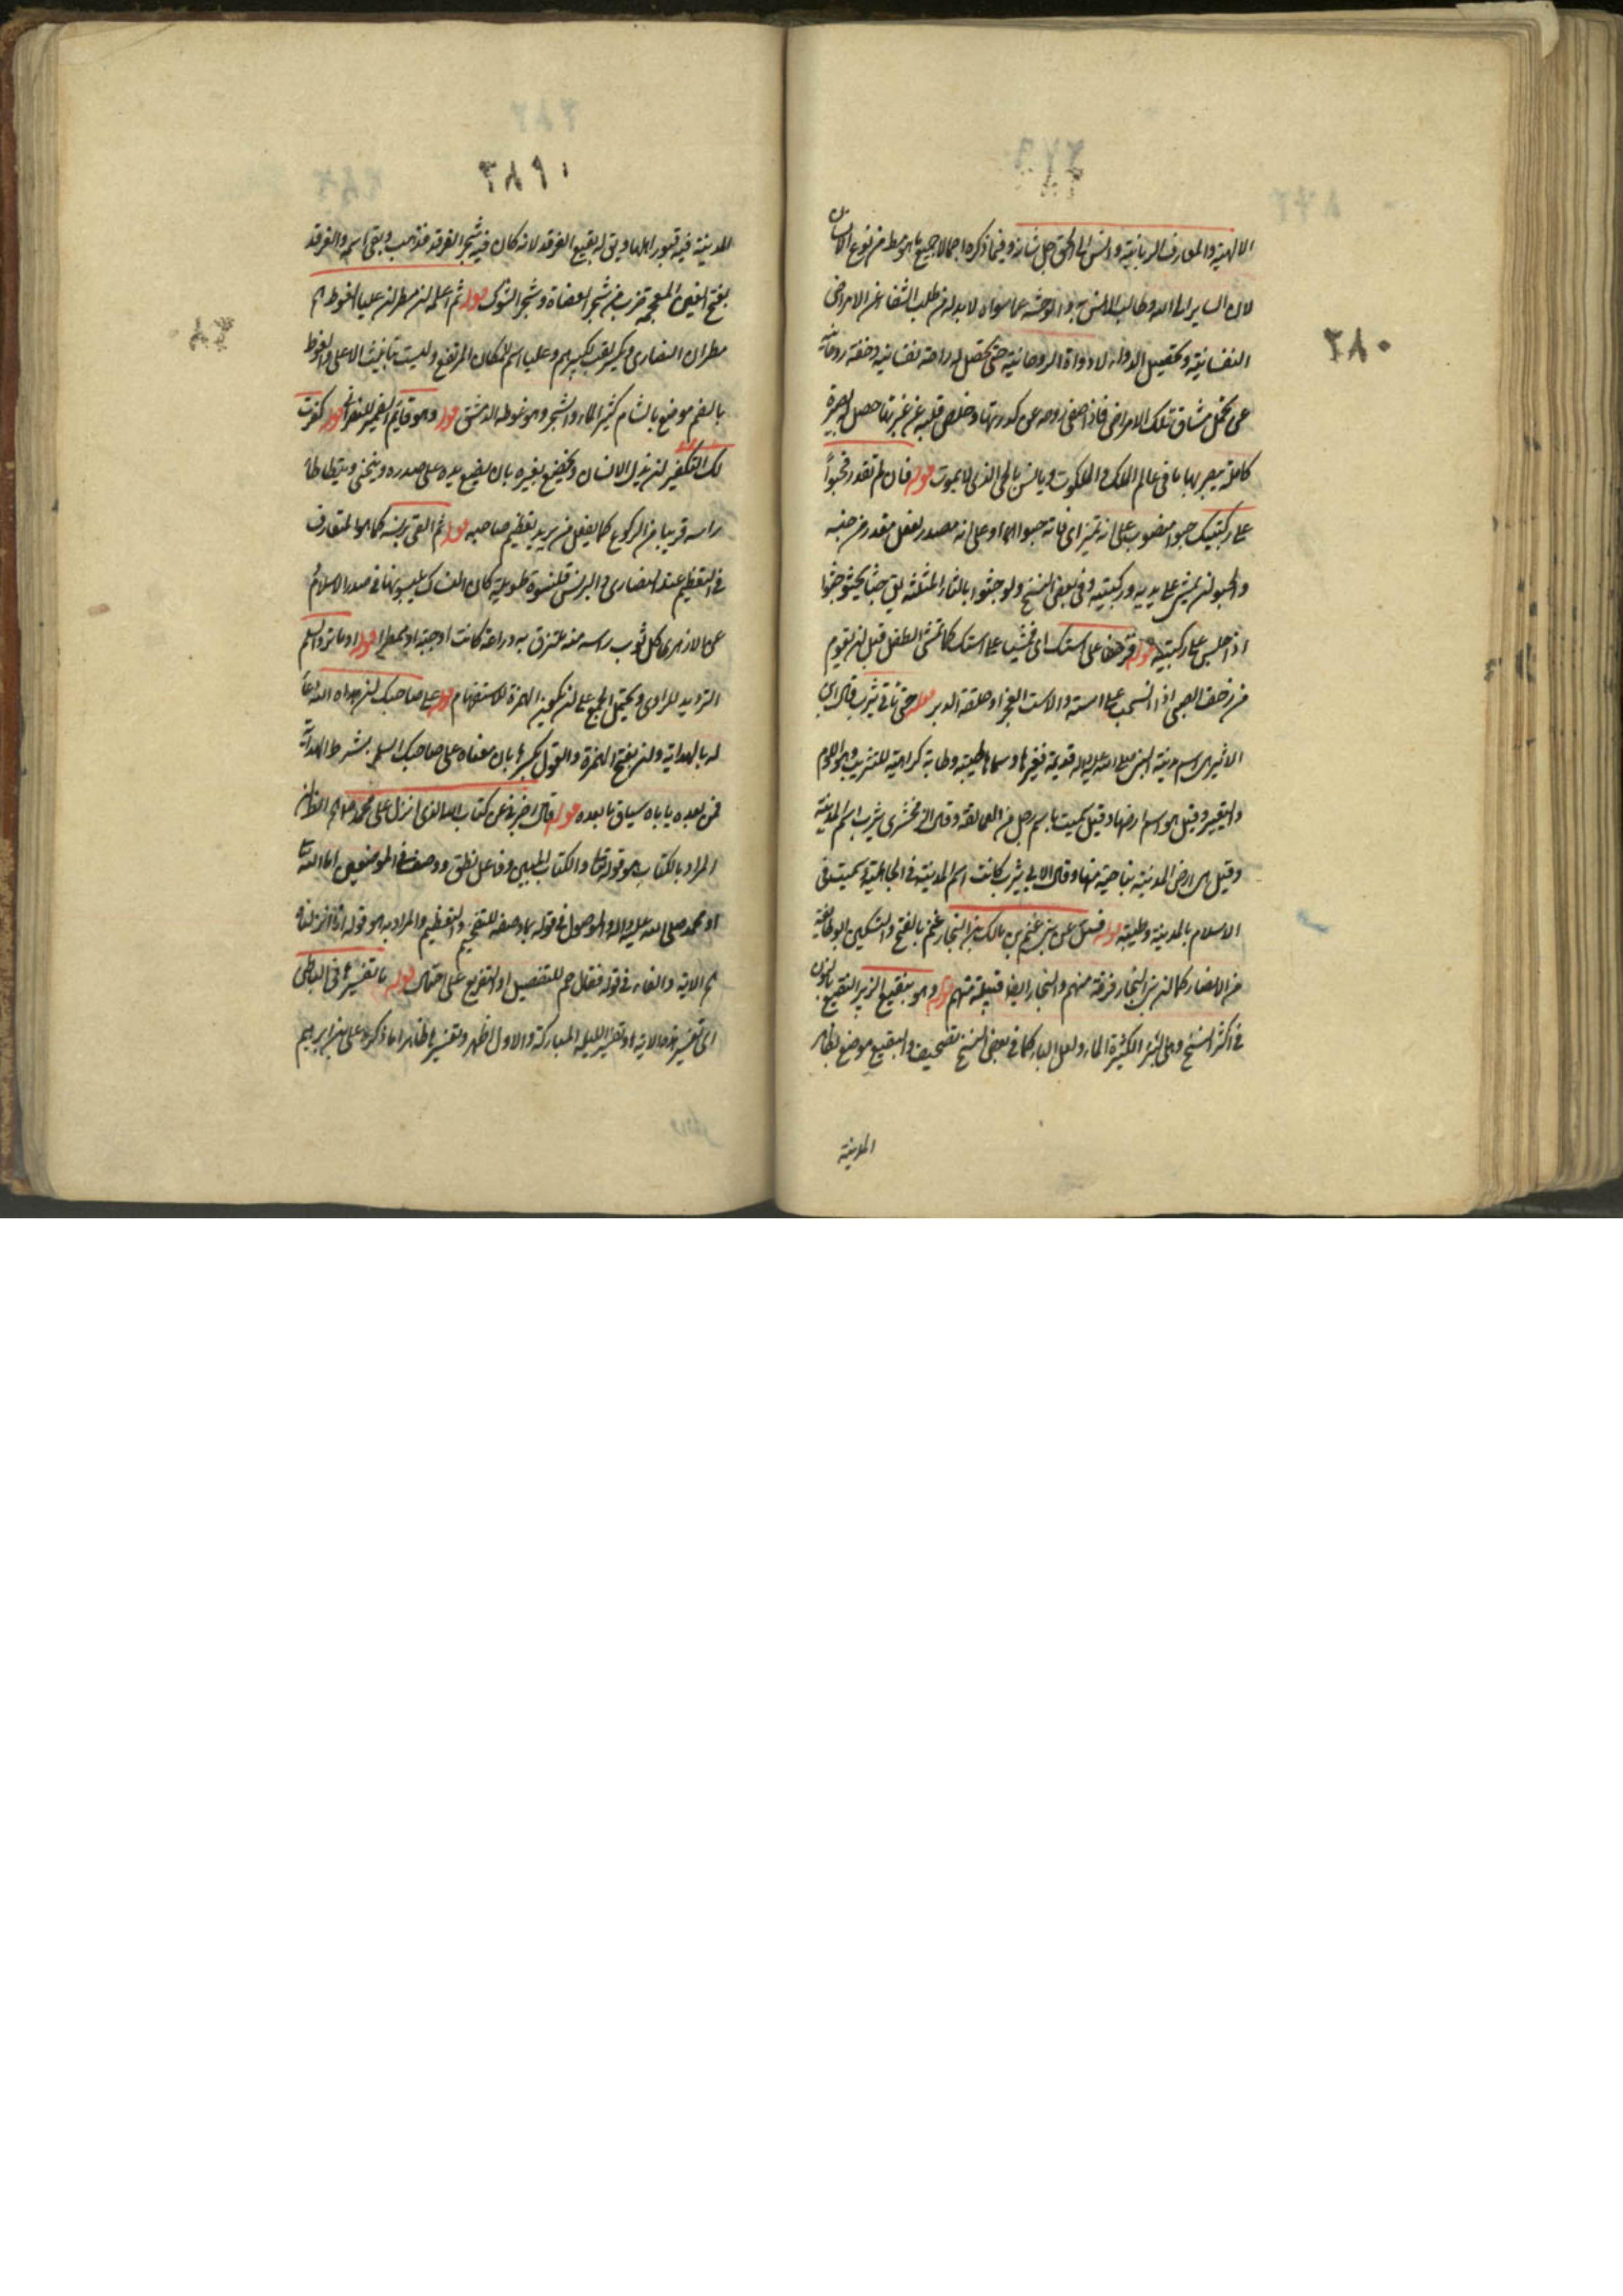 الالهية والمعارف الربانية والانس الى الحق جل شانه وفيما ذكره اجمالا جميع ما هو شرط من نوع الانسان
لان الساير الى الله وطالب الانس به والوحشة عما سواه لا بد له من طلب الشفا عن الامراض
النفسانية وتحصيل الدواء لادواة الروحانية حتى تحصل له راحة نفسانية وخفة روحانية
عن تحمل مشاق تلك الامراض فاذا صفى روحه عن كدورتها وخلص قلبه عن غبرتها حصل له بصيرة
كاملة يبصر بها ما في عالم الملك والملكوت ويانس بالحي الذي لا يموت قوله فان لم تقدر فحبوا
على ركبتيك حبوا منصوب على انه تميز اى فاته حبوا اما او على انه مصدر لفعل مقدر من جنسه
والحبو ان يمشى على يديه وركبتيه وفى بعض النسخ ولو جثوا بالثاء المثلثة يق جثا يجثو جثوا
اذا جلس على ركبتيه قوله فزحفا على استك اى فمشيا على استك كما تمشى الطفل قبل ان يقوم
من زحف الصبى اذا انسحب على استه والاست العجز او حلقة الدبر قوله حتى تاتى يثرب قال ابن
الاثير هى اسم مدينة النبي صلى الله عليه واله قديمة فغيرها وسماها طيبة وطابة كراهية للتثريب وهو اللوم
والتعيير وقيل هو اسم ارضها وقيل سميت باسم رجل من العمالقة وقال الزمخشرى يثرب اسم المدينة
وقيل هى ارض المدينة بناحية منها وقال الابى يثرب كانت اسم المدينة فى الجاهلية سميت فى
الاسلام بالمدينة وطيبة قوله فسل عن بنى غنم بن مالك بن النجار غنم بالفتح والتسكين ابو طايفة
من الانصار كما ان بنى النجار فرقة منهم والنجار ايضا قبيلة منهم قوله وهو بنقيع الزبير النقيع بالنون
فى اكثر النسخ وهى البئر الكثيرة الماء ولعل الباء كما فى بعض النسخ تصحيف والبقيع موضع بظاهر
المدينة
٠٢٨٢
المدينة فيه قبور اهلها ويق له بقيع الغرقد لانه كان فيه شجر الغرقد فذهب وبقى اسمه والغرقد
بفتح الغين المعجمة ضرب من شجر العضاة وشجر الشوك قوله ثم اعلمه ان مطران عليا الغوطة اه
مطران النصارى ويكسر لقب لكبيرهم وعليا اسم للمكان المرتفع وليست بتانيث الاعلى والغوطة
بالضم موضع بالشام كثير الماء والشجر وهو غوطه الدمشق قوله وهو قايم الضمير للنصرانى قوله كفرت
لك التكفير ان يذل الانسان ويخضع لغيره بان يضع يده على صدره وينحنى ويتطاطا
راسه قريبا من الركوع كما يفعل من يريد تعظيم صاحبه قوله ثم القى برنسه كما هو المتعارف
فى التعظيم عند النصارى والبرنس قلنسوة طويلة كان النساك يلبسونها فى صدر الاسلام
عن الازهرى كل ثوب راسه منه ملتزق به دراعة كانت او جبة او ممطرا قوله او ما ترد السلم
الترديد للراوى ويحتمل الجمع على ان يكون الهمزة للاستفهام قوله على صاحبك ان هداه الله دعا
له بالهداية وان بفتح الهمزة والقول بكسرها بان معناه على صاحبك السلم بشرط الهداية
فمن بعده ياباه سياق ما بعده قوله قال اخبرنى عن كتاب الله الذى انزل على محمد اه الظاهر
المراد بالكتاب هو قوله تعا والكتاب المبين وفاعل نطق ووصف فى الموضعين اما الله تعا
او محمد صلى الله عليه واله والموصول فى قوله بما وصفه للتفخيم والتعظيم والمراد به هو قوله انا انزلناه
اه الاية والفاء فى قوله فقال حم للتفصيل او التفريع على احتمال قوله ما تفسيرها فى الباطن
اى تفسير هذه الاية او تفسير الليلة المباركة والاول اظهر وتفسيرها ظاهرا ما ذكره على بن ابرهيم